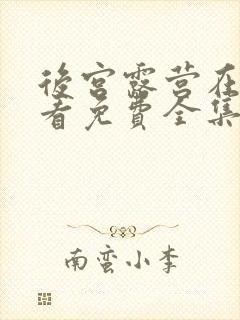 後宮露营在
看免費全集
南蛮小李